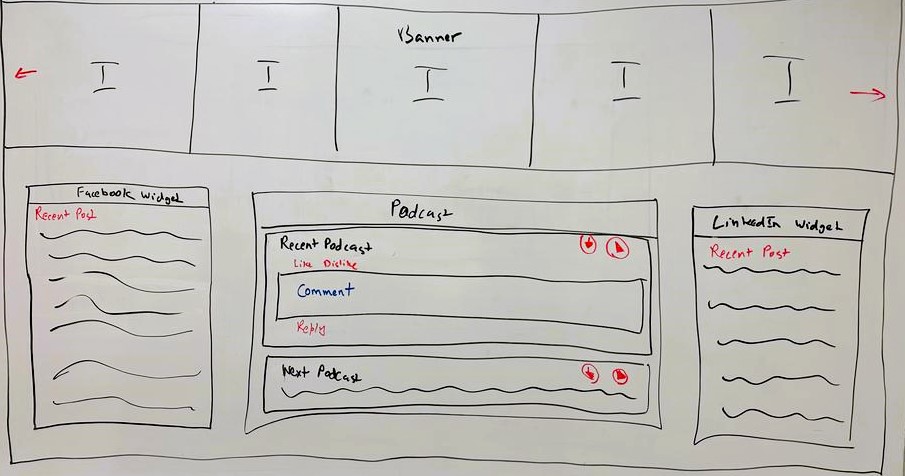 Banner
I I I I I
Facebook Widget
Recent Post
Podcast
Recent Podcast
Like Dislike
Comment
Reply
Next Podcast
LinkedIn Widget
Recent Post